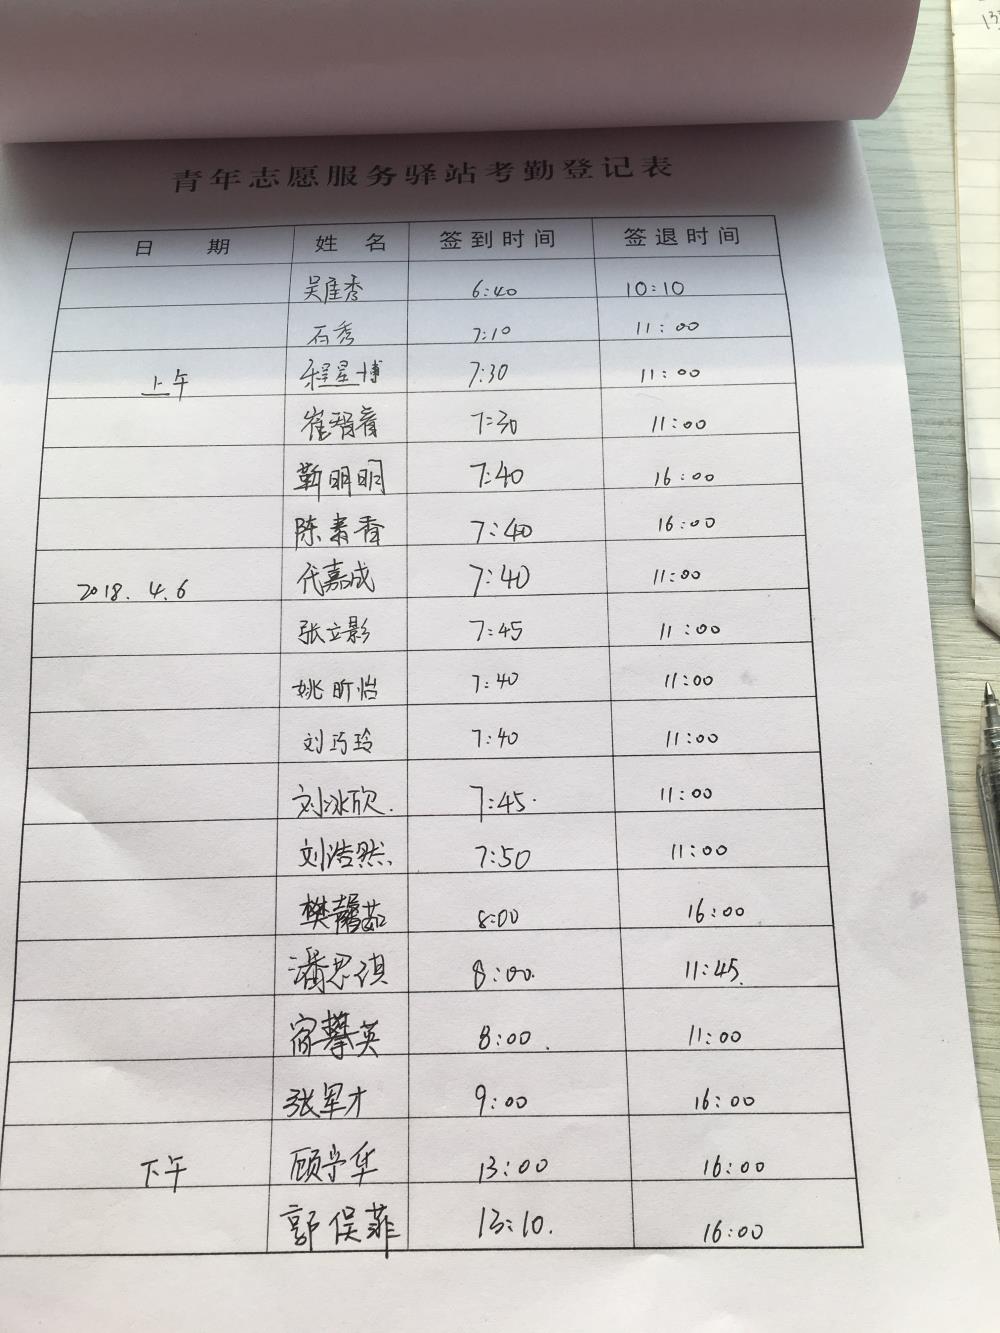 青年志愿服务驿站考勤登记表
日 期 姓 名 签到时间 签退时间
吴佳秀 6:40 10:10
石秀 7:10 11:00
上午 程星博 7:30 11:00
崔 7:30 11:00
靳明明 7:40 16:00
陈素香 7:40 16:00
2018.4.6 代嘉成 7:40 11:00
张立影 7:45 11:00
姚昕怡 7:40 11:00
刘巧玲 7:40 11:00
刘冰欣. 7:45. 11:00
刘浩然. 7:50 11:00
樊馨茹 8:00 16:00
潘思淇 8:00. 11:45.
英 8:00. 11:00
张军才 9:00 16:00
下午 顾学华 13:00 16:00
郭俣菲 13:10. 16:00